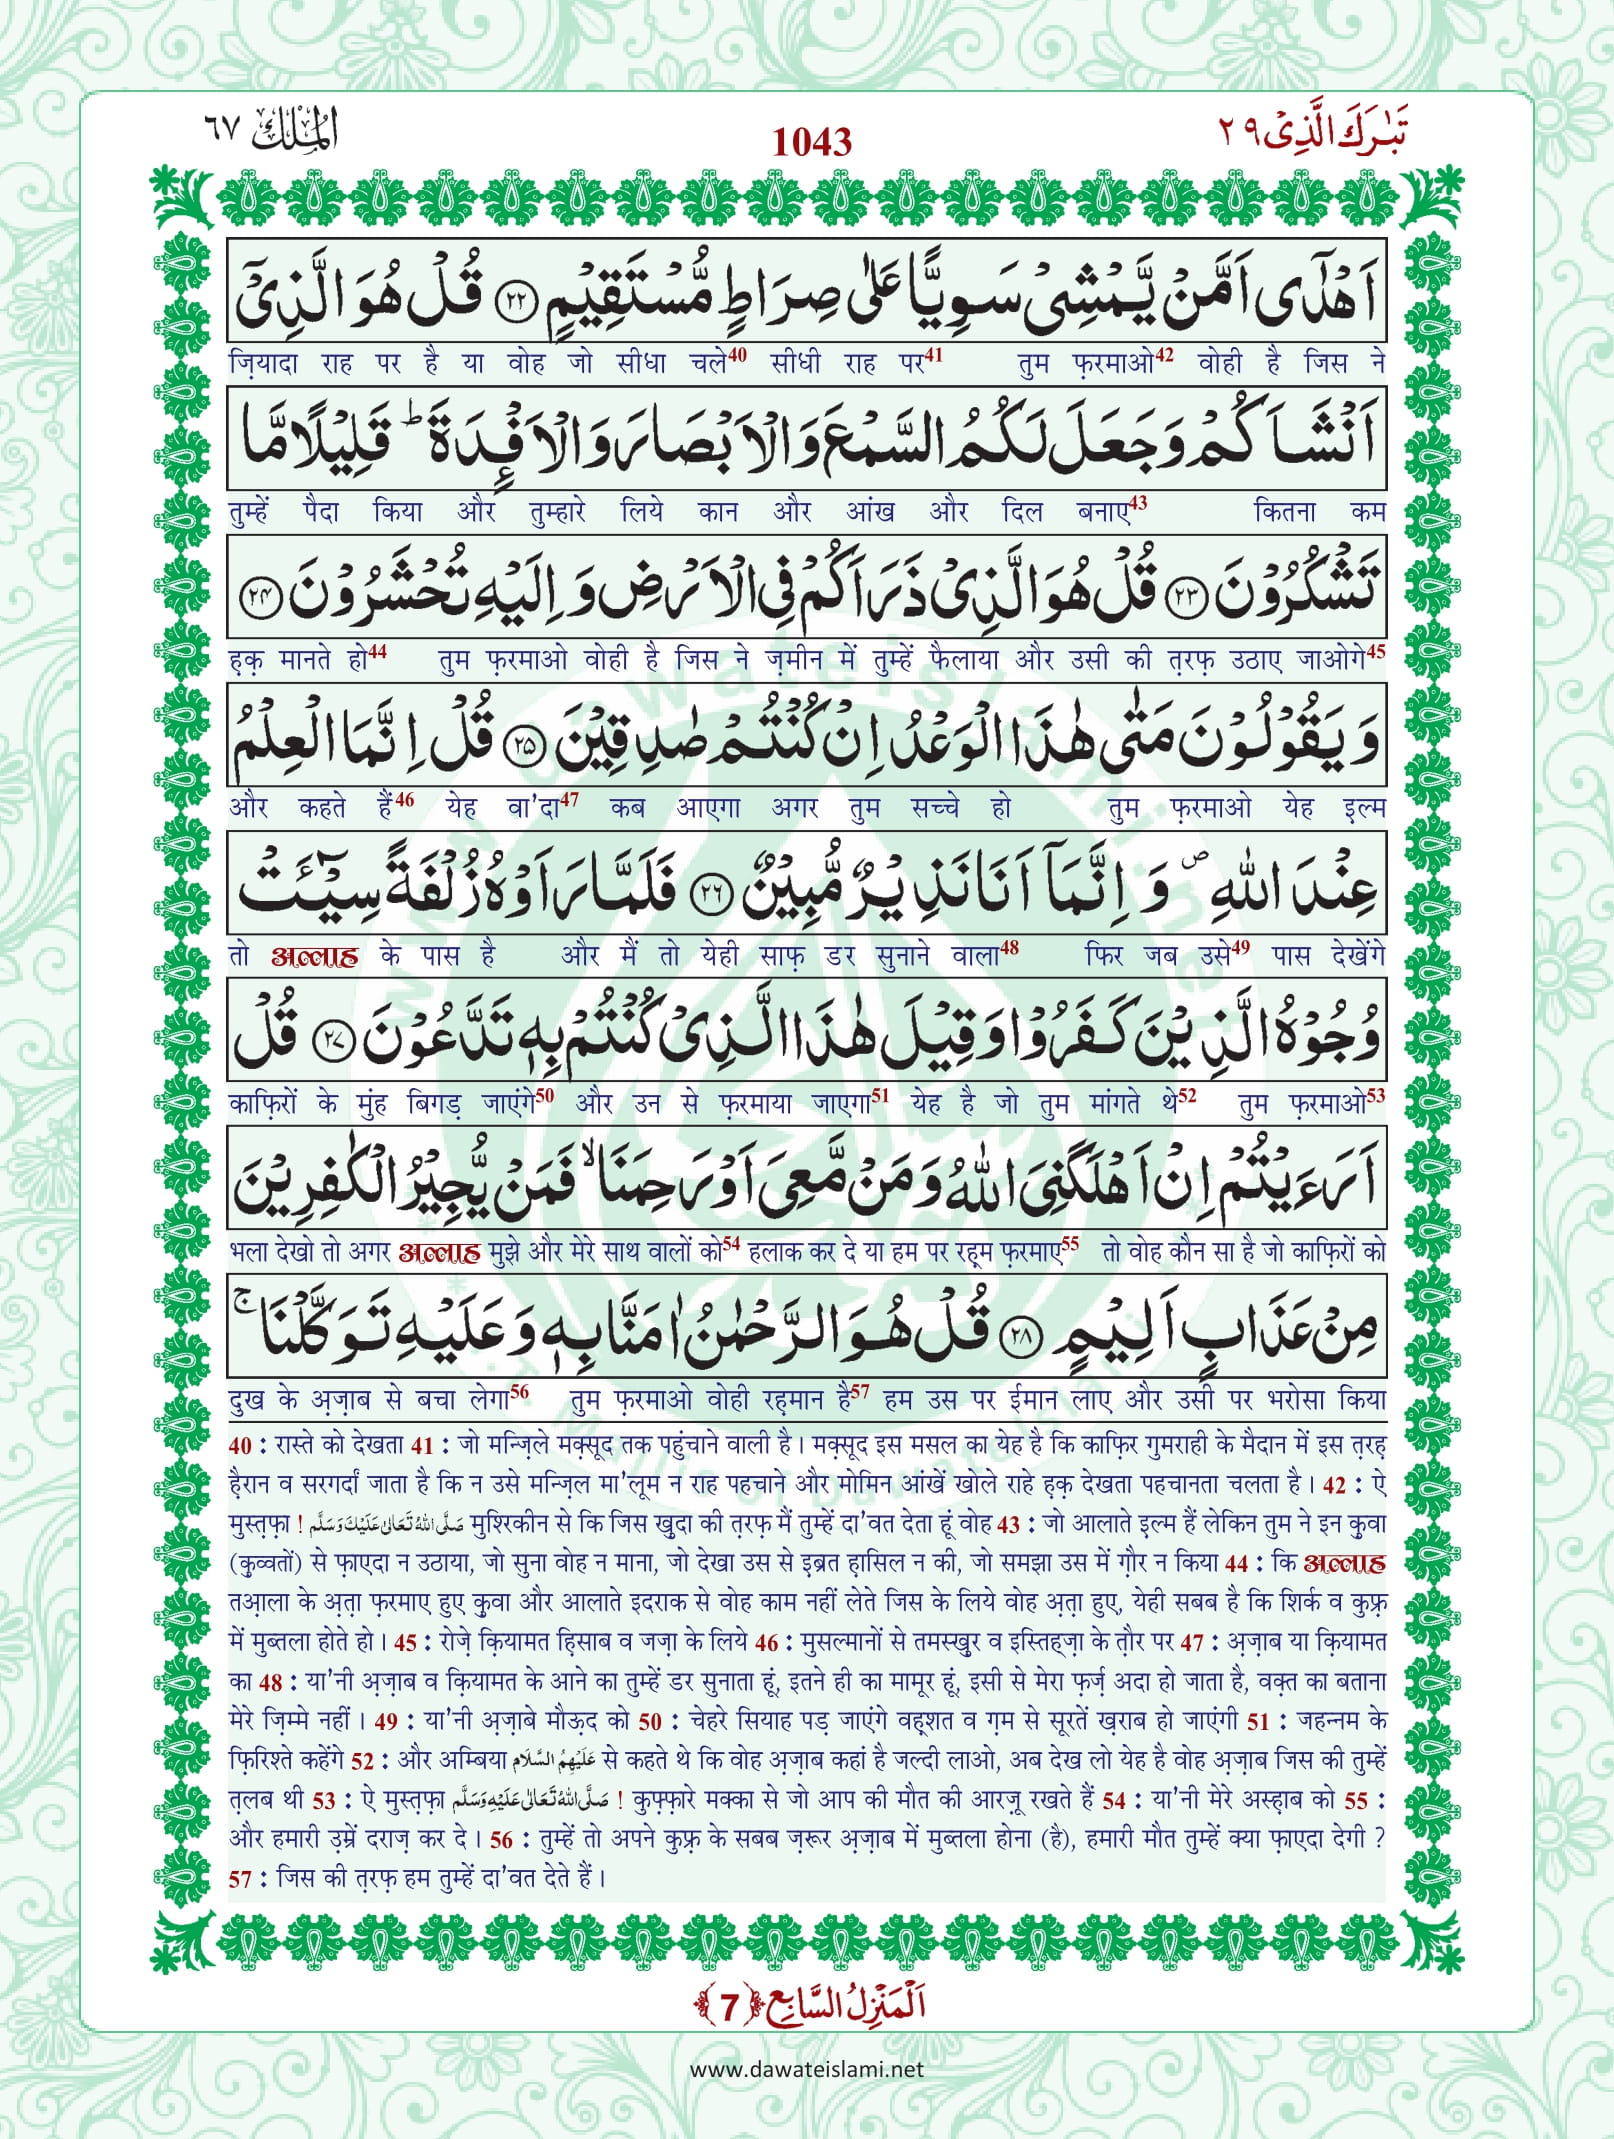 الْمُلْك ٦٧
1043
تَبٰرَكَ الَّذِیْ ٢٩
اَهْدٰۤی اَمَّنْ یَّمْشِیْ سَوِیًّا عَلٰى صِرَاطٍ مُّسْتَقِیْمٍ ﴿۲۲﴾ قُلْ هُوَ الَّذِیْۤ
ज़ियादा राह पर है या वोह जो सीधा चले40 सीधी राह पर41 तुम फ़रमाओ42 वोही है जिस ने
اَنْشَاَكُمْ وَ جَعَلَ لَكُمُ السَّمْعَ وَ الْاَبْصَارَ وَ الْاَفْـِٕدَةَ ؕ قَلِیْلًا مَّا
तुम्हें पैदा किया और तुम्हारे लिये कान और आंख और दिल बनाए43 कितना कम
تَشْكُرُوْنَ ﴿۲۳﴾ قُلْ هُوَ الَّذِیْ ذَرَاَكُمْ فِی الْاَرْضِ وَ اِلَیْهِ تُحْشَرُوْنَ ﴿۲۴﴾
ह़क़ मानते हो44 तुम फ़रमाओ वोही है जिस ने ज़मीन में तुम्हें फैलाया और उसी की त़रफ़ उठाए जाओगे45
وَ یَقُوْلُوْنَ مَتٰى هٰذَا الْوَعْدُ اِنْ كُنْتُمْ صٰدِقِیْنَ ﴿۲۵﴾ قُلْ اِنَّمَا الْعِلْمُ
और कहते हैं46 येह वा'दा47 कब आएगा अगर तुम सच्चे हो तुम फ़रमाओ येह इल्म
عِنْدَ اللّٰهِ ۪ وَ اِنَّمَاۤ اَنَا نَذِیْرٌ مُّبِیْنٌ ﴿۲۶﴾ فَلَمَّا رَاَوْهُ زُلْفَةً سِیْٓــٴَـتْ
तो अल्लाह के पास है और मैं तो येही साफ़ डर सुनाने वाला48 फिर जब उसे49 पास देखेंगे
وُجُوْهُ الَّذِیْنَ كَفَرُوْا وَ قِیْلَ هٰذَا الَّذِیْ كُنْتُمْ بِهٖ تَدَّعُوْنَ ﴿۲۷﴾ قُلْ
काफ़िरों के मुंह बिगड़ जाएंगे50 और उन से फ़रमाया जाएगा51 येह है जो तुम मांगते थे52 तुम फ़रमाओ53
اَرَءَیْتُمْ اِنْ اَهْلَكَنِیَ اللّٰهُ وَ مَنْ مَّعِیَ اَوْ رَحِمَنَا ۙ فَمَنْ یُّجِیْرُ الْكٰفِرِیْنَ
भला देखो तो अगर अल्लाह मुझे और मेरे साथ वालों को54 हलाक कर दे या हम पर रह़्म फ़रमाए55 तो वोह कौन सा है जो काफ़िरों को
مِنْ عَذَابٍ اَلِیْمٍ ﴿۲۸﴾ قُلْ هُوَ الرَّحْمٰنُ اٰمَنَّا بِهٖ وَ عَلَیْهِ تَوَكَّلْنَا ۚ
दुख के अ़ज़ाब से बचा लेगा56 तुम फ़रमाओ वोही रह़मान है57 हम उस पर ईमान लाए और उसी पर भरोसा किया
40 : रास्ते को देखता 41 : जो मन्ज़िले मक़्सूद तक पहुंचाने वाली है। मक़्सूद इस मसल का येह है कि काफ़िर गुमराही के मैदान में इस त़रह़
ह़ैरान व सरगर्दां जाता है कि न उसे मन्ज़िल मा'लूम न राह पहचाने और मोमिन आंखें खोले राहे ह़क़ देखता पहचानता चलता है। 42 : ऐ
मुस्त़फ़ा ! صَلَّى اللهُ تَعَالٰى عَلَيْكَ وَسَلَّم मुश्रिकीन से कि जिस ख़ुदा की त़रफ़ मैं तुम्हें दा'वत देता हूं वोह 43 : जो आलाते इल्म हैं लेकिन तुम ने इन क़ुवा
(क़ुव्वतों) से फ़ाएदा न उठाया, जो सुना वोह न माना, जो देखा उस से इब्रत ह़ासिल न की, जो समझा उस में ग़ौर न किया 44 : कि अल्लाह
तआ़ला के अ़त़ा फ़रमाए हुए क़ुवा और आलाते इदराक से वोह काम नहीं लेते जिस के लिये वोह अ़त़ा हुए, येही सबब है कि शिर्क व कुफ़्र
में मुब्तला होते हो। 45 : रोज़े क़ियामत ह़िसाब व जज़ा के लिये 46 : मुसल्मानों से तमस्ख़ुर व इस्तिह्ज़ा के त़ौर पर 47 : अ़ज़ाब या क़ियामत
का 48 : या'नी अ़ज़ाब व क़ियामत के आने का तुम्हें डर सुनाता हूं, इतने ही का मामूर हूं, इसी से मेरा फ़र्ज़ अदा हो जाता है, वक़्त का बताना
मेरे ज़िम्मे नहीं। 49 : या'नी अ़ज़ाबे मौऊ़द को 50 : चेहरे सियाह पड़ जाएंगे वह़्शत व ग़म से सूरतें ख़राब हो जाएंगी 51 : जहन्नम के
फ़िरिश्ते कहेंगे 52 : और अम्बिया عَلَيْهِمُ السَّلَام से कहते थे कि वोह अ़ज़ाब कहां है जल्दी लाओ, अब देख लो येह है वोह अ़ज़ाब जिस की तुम्हें
त़लब थी 53 : ऐ मुस्त़फ़ा صَلَّى اللهُ تَعَالٰى عَلَيْهِ وَسَلَّم ! कुफ़्फ़ारे मक्का से जो आप की मौत की आरज़ू रखते हैं 54 : या'नी मेरे अस्ह़ाब को 55 :
और हमारी उ़म्रें दराज़ कर दे। 56 : तुम्हें तो अपने कुफ़्र के सबब ज़रूर अ़ज़ाब में मुब्तला होना (है), हमारी मौत तुम्हें क्या फ़ाएदा देगी ?
57 : जिस की त़रफ़ हम तुम्हें दा'वत देते हैं।
اَلْمَنْزِلُ السَّابِع ﴿7﴾
www.dawateislami.net